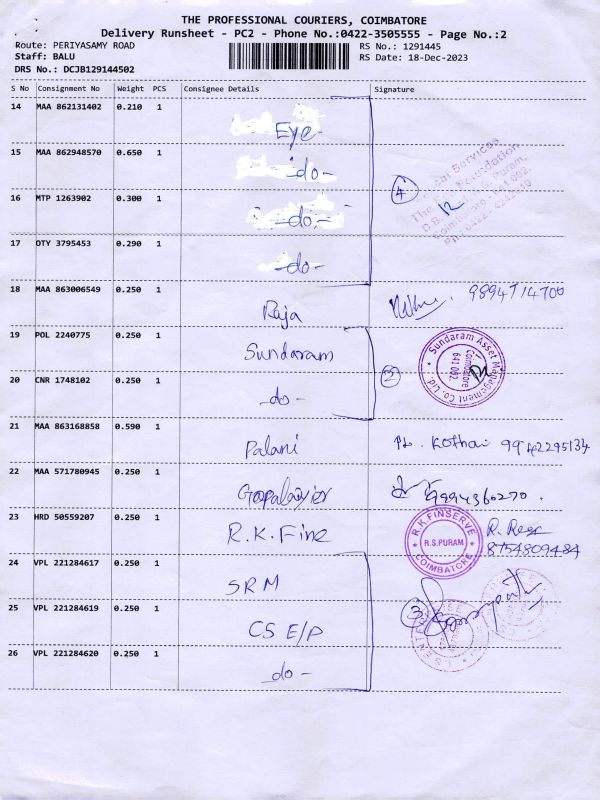 THE PROFESSIONAL COURIERS, COIMBATORE
Delivery Runsheet - PC2 - Phone No.:0422-3505555 - Page No.:2
Route: PERIYASAMY ROAD RS No.: 1291445
Staff: BALU RS Date: 18-Dec-2023
DRS No.: DCJB129144502
S No Consignment No Weight PCS Consignee Details Signature
14 MAA 862131402 0.210 1
Eye
15 MAA 862948570 0.650 1
-do-
4
16 MTP 1263902 0.300 1
-do-
17 OTY 3795453 0.290 1
-do-
18 MAA 863006549 0.250 1
Raja 9894714700
19 POL 2240775 0.250 1
Sundaram
Sundaram Asset Management Co. Ltd.
Coimbatore
641 002.
20 CNR 1748102 0.250 1
-do- 2
21 MAA 863168858 0.590 1
Palani Kothai 9942295134
22 MAA 571780945 0.250 1
9994360270.
23 HRD 50559207 0.250 1
R.K. Fine
R.K FINSERVE
R.S.PURAM
COIMBATORE
8754809484
24 VPL 221284617 0.250 1
SRM
25 VPL 221284619 0.250 1
CS E/P 3
26 VPL 221284620 0.250 1
-do-